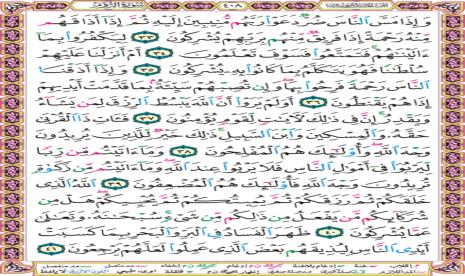 ٤٠٨
وَإِذَا مَسَّ النَّاسَ ضُرٌّ دَعَوْا رَبَّهُم مُّنِيبِينَ إِلَيْهِ ثُمَّ إِذَا أَذَاقَهُم
مِّنْهُ رَحْمَةً إِذَا فَرِيقٌ مِّنْهُم بِرَبِّهِمْ يُشْرِكُونَ ٣٣ لِيَكْفُرُوا بِمَا
ءَاتَيْنَٰهُمْ فَتَمَتَّعُوا فَسَوْفَ تَعْلَمُونَ ٣٤ أَمْ أَنزَلْنَا عَلَيْهِمْ
سُلْطَٰنًا فَهُوَ يَتَكَلَّمُ بِمَا كَانُوا بِهِ يُشْرِكُونَ ٣٥ وَإِذَا أَذَقْنَا
النَّاسَ رَحْمَةً فَرِحُوا بِهَا وَإِن تُصِبْهُمْ سَيِّئَةٌ بِمَا قَدَّمَتْ أَيْدِيهِمْ
إِذَا هُمْ يَقْنَطُونَ ٣٦ أَوَلَمْ يَرَوْا أَنَّ اللَّهَ يَبْسُطُ الرِّزْقَ لِمَن يَشَاءُ
وَيَقْدِرُ إِنَّ فِي ذَٰلِكَ لَءَايَٰتٍ لِّقَوْمٍ يُؤْمِنُونَ ٣٧ فَـَٔاتِ ذَا الْقُرْبَىٰ
حَقَّهُ وَالْمِسْكِينَ وَابْنَ السَّبِيلِ ذَٰلِكَ خَيْرٌ لِّلَّذِينَ يُرِيدُونَ
وَجْهَ اللَّهِ وَأُولَٰئِكَ هُمُ الْمُفْلِحُونَ ٣٨ وَمَا ءَاتَيْتُم مِّن رِّبًا
لِّيَرْبُوَا فِي أَمْوَٰلِ النَّاسِ فَلَا يَرْبُوا عِندَ اللَّهِ وَمَا ءَاتَيْتُم مِّن زَكَوٰةٍ
تُرِيدُونَ وَجْهَ اللَّهِ فَأُولَٰئِكَ هُمُ الْمُضْعِفُونَ ٣٩ اللَّهُ الَّذِي
خَلَقَكُمْ ثُمَّ رَزَقَكُمْ ثُمَّ يُمِيتُكُمْ ثُمَّ يُحْيِيكُمْ هَلْ مِن
شُرَكَائِكُم مَّن يَفْعَلُ مِن ذَٰلِكُم مِّن شَيْءٍ سُبْحَٰنَهُ وَتَعَٰلَىٰ
عَمَّا يُشْرِكُونَ ٤٠ ظَهَرَ الْفَسَادُ فِي الْبَرِّ وَالْبَحْرِ بِمَا كَسَبَتْ
أَيْدِي النَّاسِ لِيُذِيقَهُم بَعْضَ الَّذِي عَمِلُوا لَعَلَّهُمْ يَرْجِعُونَ ٤١